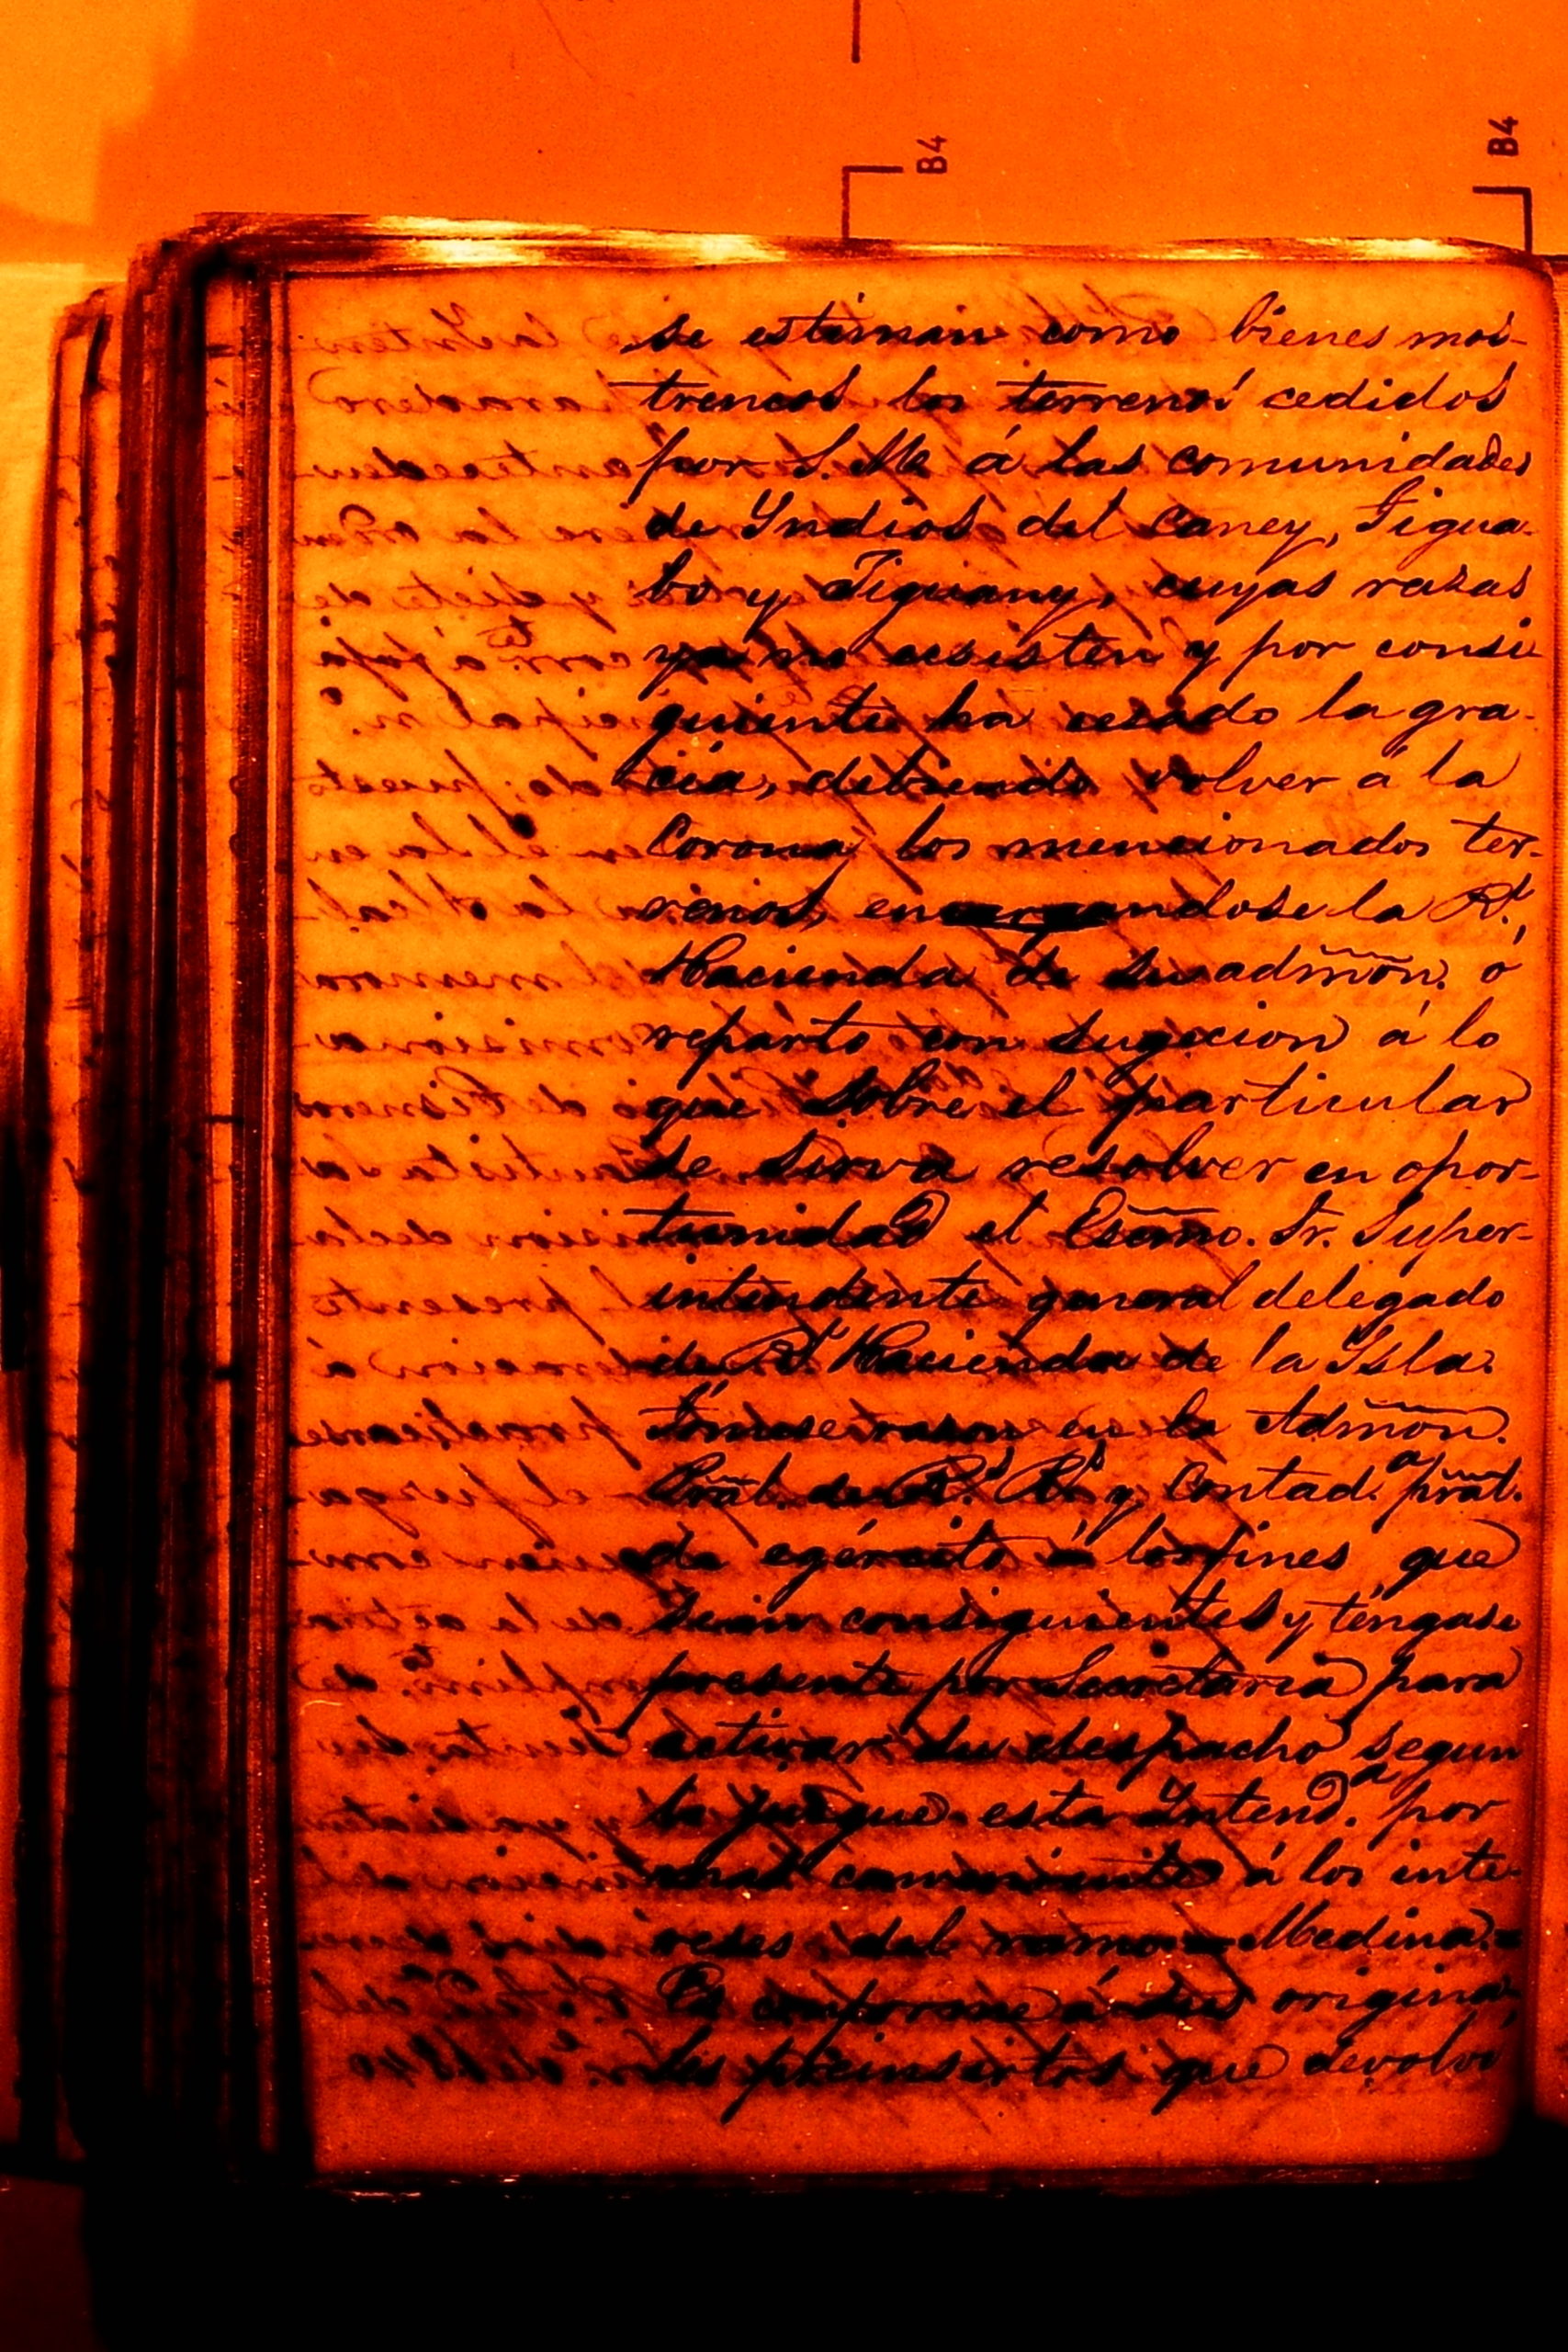 B4
B4
se estiman como bienes mos-
trencos los terrenos cedidos
por S. M. á las comunidades
de Yndios del Caney, Tigua-
bo y Jiguany, cuyas razas
ya no ecsisten y por consi-
guiente ha cesado la gra-
cia, debiendo volver á la
Corona los mencionados ter-
renos, encargandose la Rl.
Hacienda de su admñon. ó
reparto con sugecion á lo
que sobre el particular
se sirva resolver en opor-
tunidad el Escmo. Sr. Super-
intendente general delegado
de Rl. Hacienda de la Ysla.
Tómese razon en la Admñon.
Pral. de Rs. Rs. y Contad.a pral.
de egército á los fines que
sean consiguientes y téngase
presente por Secretaría para
activar su despacho segun
lo juzgue esta Yntend.a por
mas conveniente á los inte-
reses del ramo = Medina =
Es conforme á sus origina-
les preinsertos que devolví